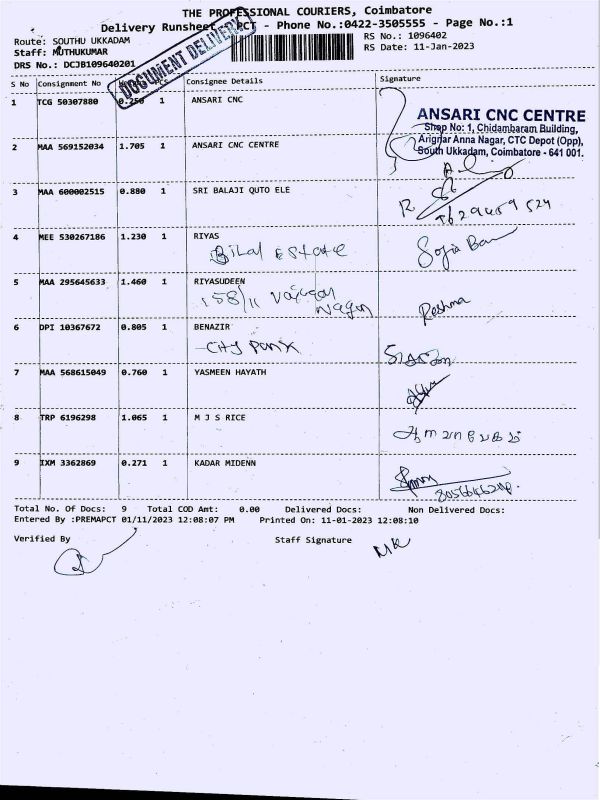 THE PROFESSIONAL COURIERS, Coimbatore
Delivery Runsheet PCT - Phone No.:0422-3505555 - Page No.:1
Route: SOUTHU UKKADAM
RS No.: 1096402
Staff: MUTHUKUMAR
RS Date: 11-Jan-2023
DRS No.: DCJB109640201
DOCUMENT DELIVERY
S No Consignment No Pcs Consignee Details Signature
1 TCG 50307880 0.250 1 ANSARI CNC
ANSARI CNC CENTRE
Shop No: 1, Chidambaram Building,
Arignar Anna Nagar, CTC Depot (Opp),
South Ukkadam, Coimbatore - 641 001.
2 MAA 569152034 1.705 1 ANSARI CNC CENTRE
3 MAA 600002515 0.880 1 SRI BALAJI QUTO ELE
4 MEE 530267186 1.230 1 RIYAS
Bilal Estate
Sofia Banu
5 MAA 295645633 1.460 1 RIYASUDEEN
158/11
Nagar
Reshma
6 DPI 10367672 0.805 1 BENAZIR
City Park
7 MAA 568615049 0.760 1 YASMEEN HAYATH
8 TRP 6196298 1.065 1 M J S RICE
9 IXM 3362869 0.271 1 KADAR MIDENN
Total No. Of Docs: 9 Total COD Amt: 0.00 Delivered Docs: Non Delivered Docs:
Entered By :PREMAPCT 01/11/2023 12:08:07 PM Printed On: 11-01-2023 12:08:10
Verified By Staff Signature
MK